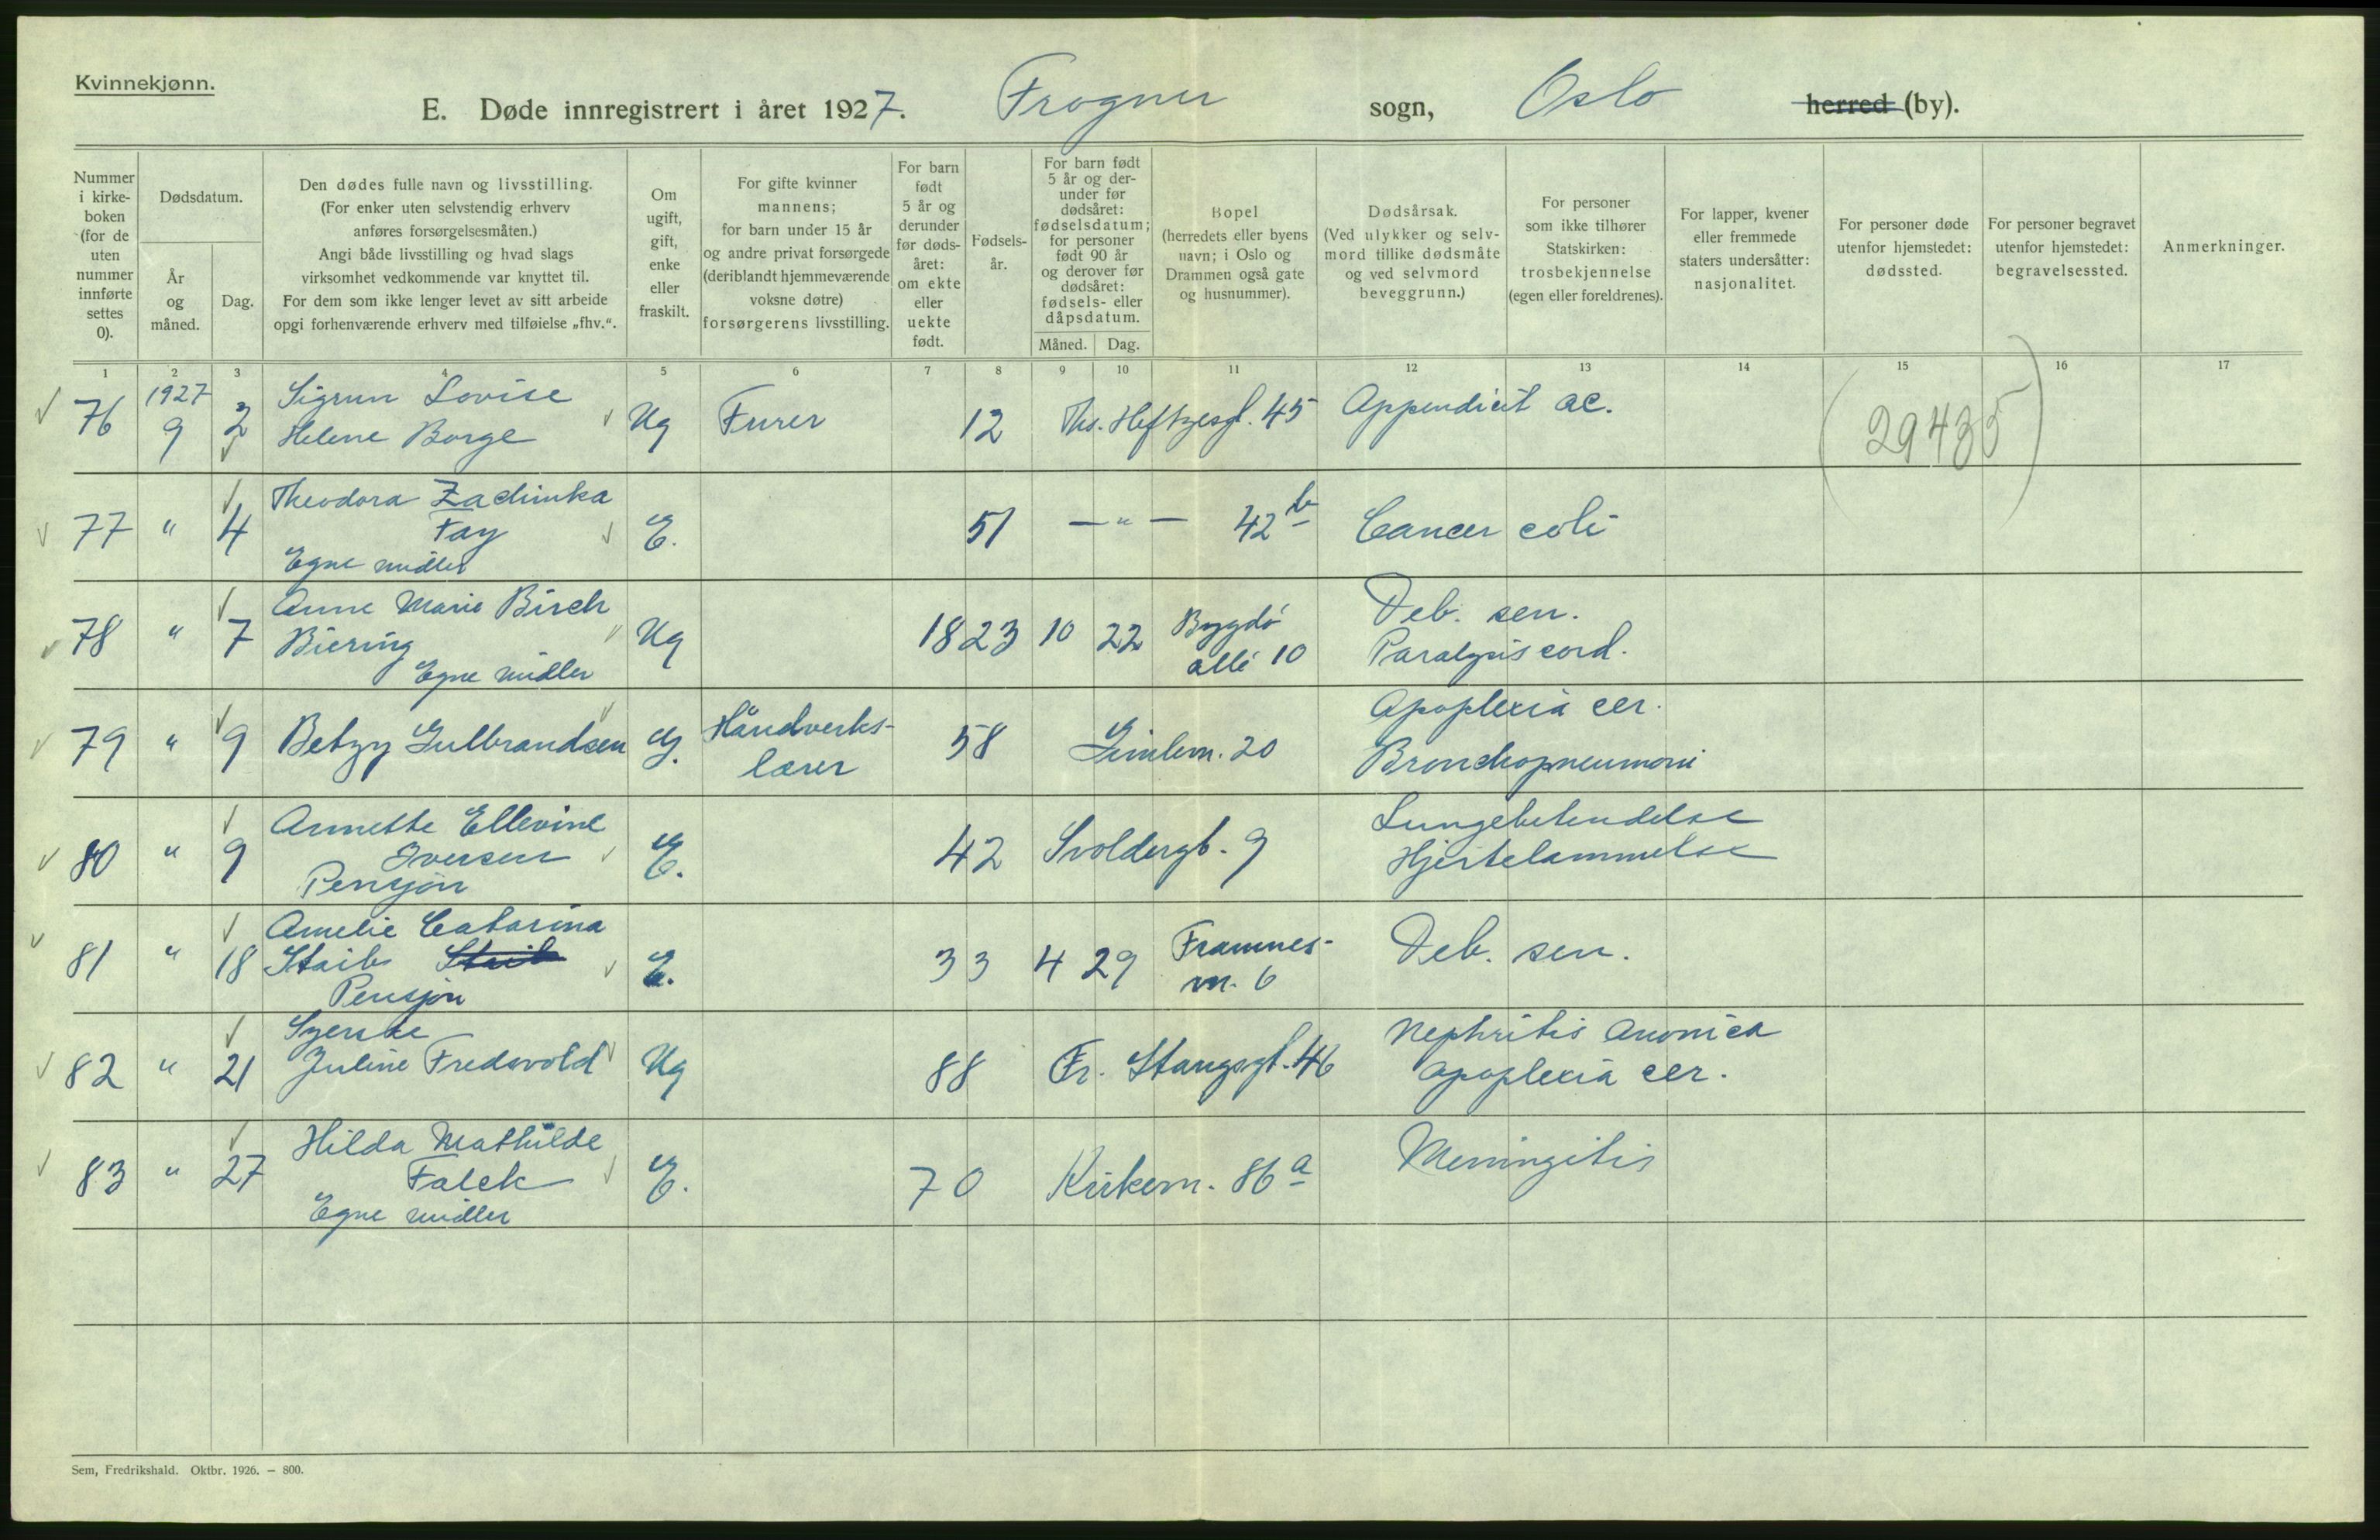 Kvinnekjønn.
E. Døde innregistrert i året 1927. Frogner sogn, Oslo herred (by).
Nummer i kirkeboken (for de uten nummer innførte settes 0).
Dødsdatum.
År og måned.
Dag.
Den dødes fulle navn og livsstilling.
(For enker uten selvstendig erhverv
anføres forsørgelsesmåten.)
Angi både livsstilling og hvad slags
virksomhet vedkommende var knyttet til.
For dem som ikke lenger levet av sitt arbeide
opgi forhenværende erhverv med tilføielse „fhv.“.
Om ugift, gift, enke eller fraskilt.
For gifte kvinner
mannens;
for barn under 15 år
og andre privat forsørgede
(deriblandt hjemmeværende
voksne døtre)
forsørgerens livsstilling.
For barn født 5 år og derunder før dødsåret: om ekte eller uekte født.
Fødselsår.
For barn født 5 år og derunder før dødsåret: fødselsdatum; for personer født 90 år og derover før dødsåret: fødsels- eller dåpsdatum.
Måned. Dag.
Bopel
(herredets eller byens
navn; i Oslo og
Drammen også gate
og husnummer).
Dødsårsak.
(Ved ulykker og selv-
mord tillike dødsmåte
og ved selvmord
beveggrunn.)
For personer
som ikke tilhører
Statskirken:
trosbekjennelse
(egen eller foreldrenes).
For lapper, kvener
eller fremmede
staters undersåtter:
nasjonalitet.
For personer døde
utenfor hjemstedet:
dødssted.
For personer begravet
utenfor hjemstedet:
begravelsessted.
Anmerkninger.
1 2 3 4 5 6 7 8 9 10 11 12 13 14 15 16 17
76 1927 9 2 Sigrun Lovise
Helene Borge Ug Furer 12 Ths. Heftyesgt. 45 Appendicit ac. (29435)
77 " 4 Theodora Zadimka
Fay
Egne midler E. 51 — " — 42 b Cancer coli
78 " 7 Anne Marie Birch
Biering
Egne midler Ug 1823 10 22 Bygdö
allé 10 Deb. sen.
Paralysis cord.
79 " 9 Betzy Gulbrandsen G. Håndverks-
lærer 58 Gimlem. 20 Apoplexia cer.
Bronchopneumoni
80 " 9 Annette Ellevine
Iversen
Pensjon E. 42 Svoldergt. 9 Lungebetendelse
Hjertelammelse
81 " 18 Amelie Catarina
Staib Staib
Pensjon E. 33 4 29 Framnes-
m. 6 Deb. sen.
82 " 21 Syerske
Juline Fredsvold Ug 88 Fr. Stangsgt. 46 Nephritis cronica
apoplexia cer.
83 " 27 Hilda Mathilde
Falck
Egne midler E. 70 Kirkem. 86 a Meningitis
Sem, Fredrikshald. Oktbr. 1926. — 800.